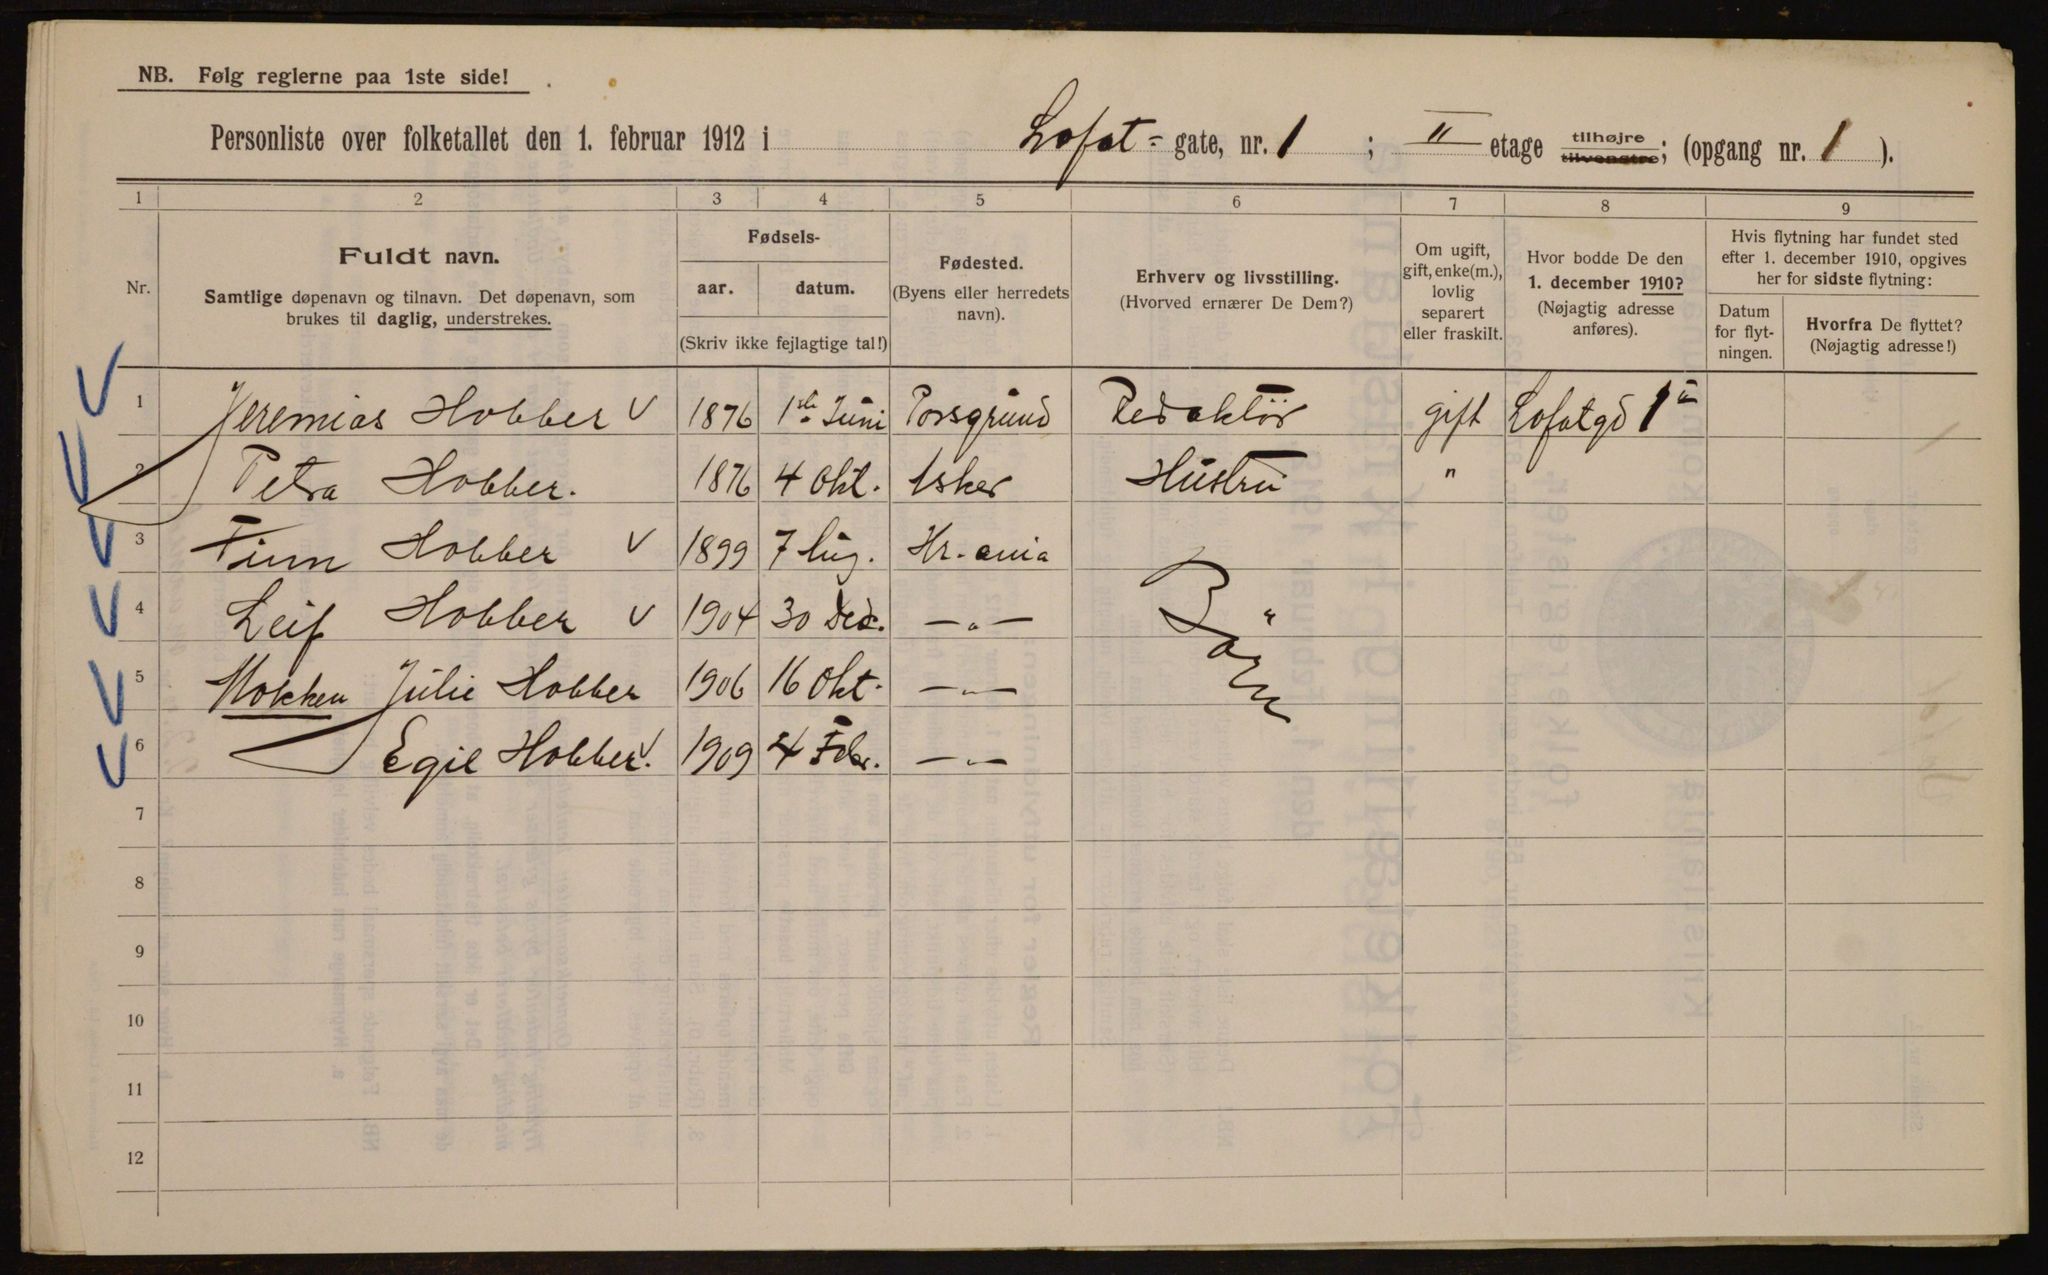 NB. Følg reglerne paa 1ste side!
Personliste over folketallet den 1. februar 1912 i Lofot- gate, nr. 1 ; II etage tilhøjre tilvenstre; (opgang nr. 1 ).
1 2 3 4 5 6 7 8 9
Nr.
Fuldt navn.
Samtlige døpenavn og tilnavn. Det døpenavn, som
brukes til daglig, understrekes.
Fødsels-
aar. datum.
(Skriv ikke fejlagtige tal!)
Fødested.
(Byens eller herredets
navn).
Erhverv og livsstilling.
(Hvorved ernærer De Dem?)
Om ugift,
gift, enke(m.),
lovlig
separert
eller fraskilt.
Hvor bodde De den
1. december 1910?
(Nøjagtig adresse
anføres).
Hvis flytning har fundet sted
efter 1. december 1910, opgives
her for sidste flytning:
Datum
for flyt-
ningen.
Hvorfra De flyttet?
(Nøjagtig adresse!)
1 Jeremias Hobber 1876 1ste Juni Porsgrund Redaktör gift Lofotgd 1
2 Petra Hobber. 1876 4 Okt. Asker Hustru "
3 Finn Hobber 1899 7 Aug. Kr.ania
4 Leif Hobber 1904 30 Dec. —"— Börn
5 Mokken Julie Hobber 1906 16 Okt. —"—
6 Egil Hobber. 1909 4 Febr. —"—
7
8
9
10
11
12